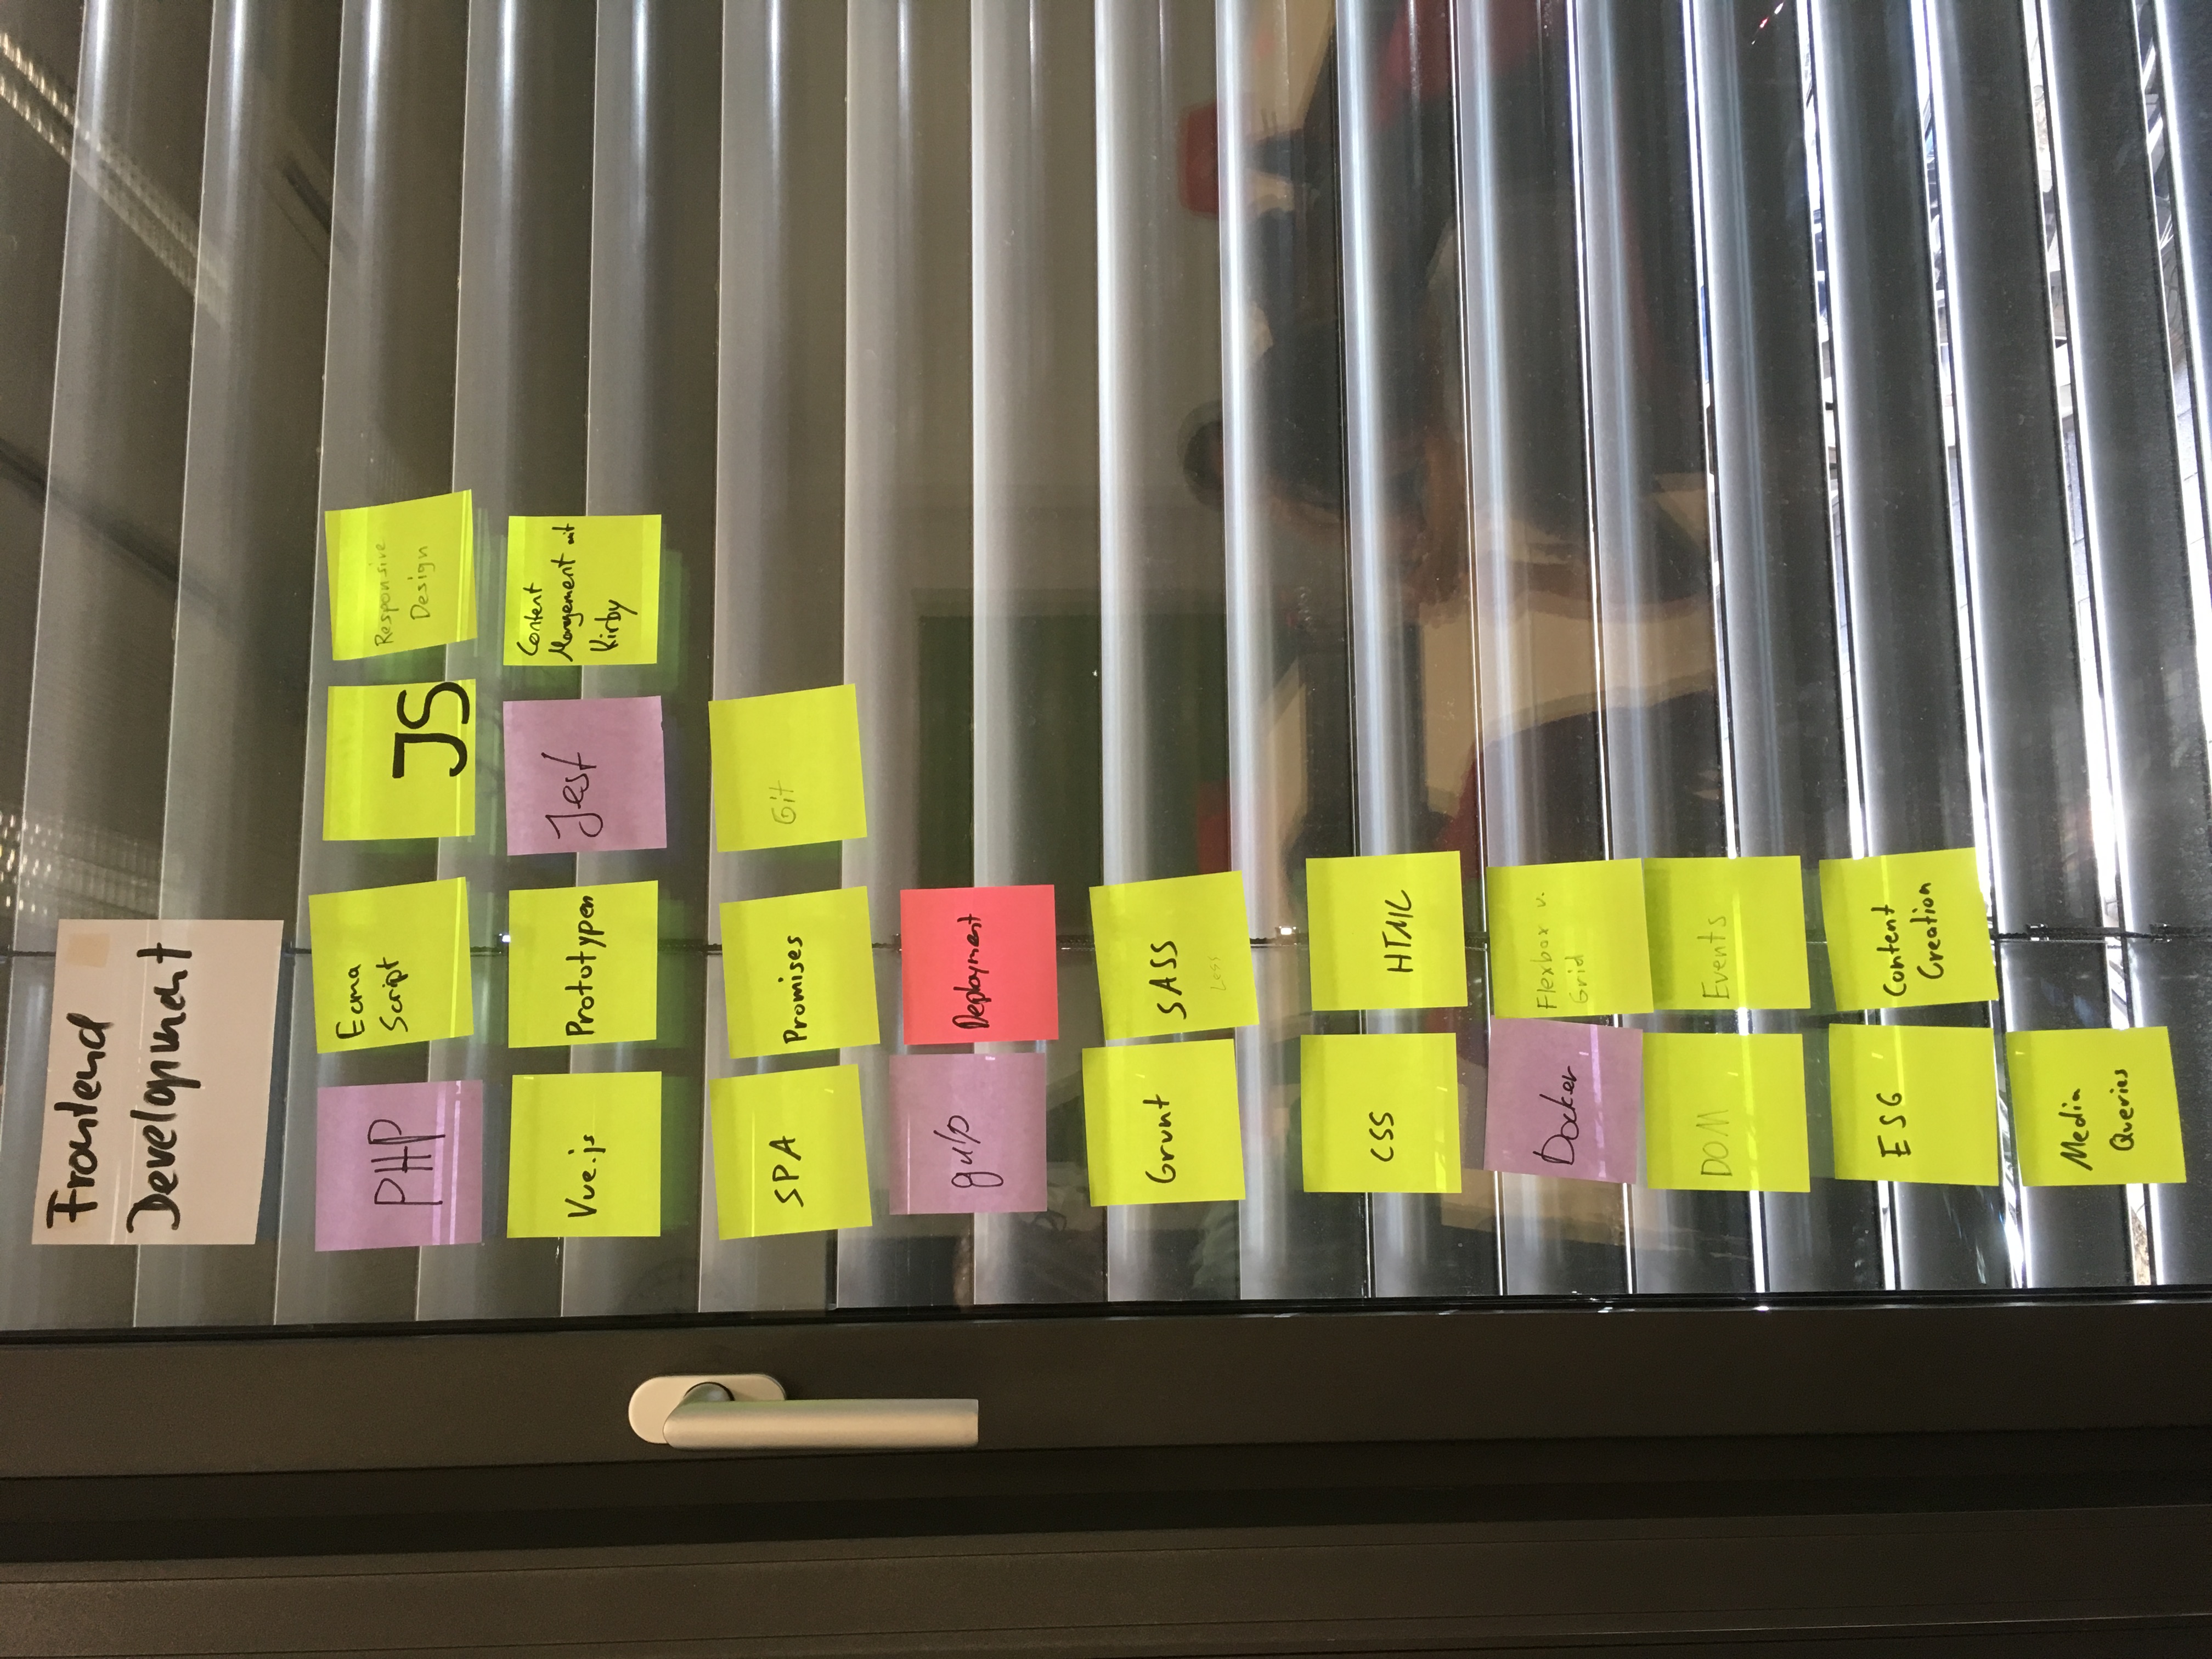 Frontend
Development
PHP
Ecma
Script
JS
Responsive
Design
Vue.js
Prototypen
Jest
Content
Mangement mit
Kirby
SPA
Promises
Git
gulp
Deployment
Grunt
SASS
Less
CSS
HTML
Docker
Flexbox v.
Grid
DOM
Events
ES6
Content
Creation
Media
Queries